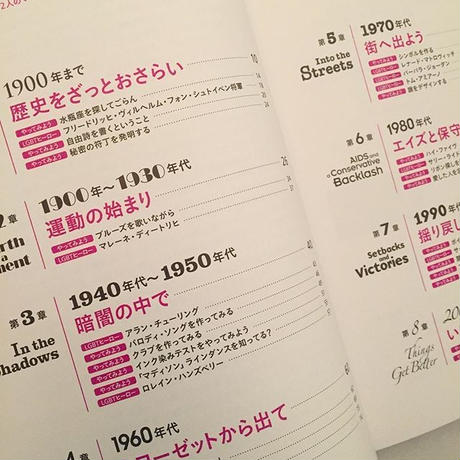 2人の
1900年まで
歴史をざっとおさらい 10
やってみよう 水瓶座を探してごらん 14
LGBTヒーロー フリードリッヒ・ヴィルヘルム・フォン・シュトイベン将軍 18
やってみよう 自由詩を書くということ
やってみよう 秘密の符丁を発明する 24
2章
1900年〜1930年代
運動の始まり 26
やってみよう ブルーズを歌いながら 34
LGBTヒーロー マレーネ・ディートリヒ 37
第3章
In the
Shadows
1940年代〜1950年代
暗闇の中で 40
LGBTヒーロー アラン・チューリング
やってみよう パロディ・ソングを作ってみる
やってみよう クラブを作ってみる
やってみよう インク染みテストをやってみよう
やってみよう 「マディソン」ラインダンスを知ってる?
LGBTヒーロー ロレイン・ハンズベリー
1960年代
ローゼットから出て
第5章
Into the
Streets
1970年代
街へ出よう
やってみよう シンボルを作る
LGBTヒーロー レナード・マトロヴィッチ
LGBTヒーロー バーバラ・ジョーダン
LGBTヒーロー トム・アミアーノ
やってみよう 旗をデザインする
第6章
AIDS and
a Conservative
Backlash
1980年代
エイズと保守
やってみよう ハイ・ファイヴ
LGBTヒーロー サリー・ライド
やってみよう リボン
やってみよう 愛した人を
第7章
Setbacks
and
Victories
1990年代
揺り戻し
第8章
Things
Get Better
20
い